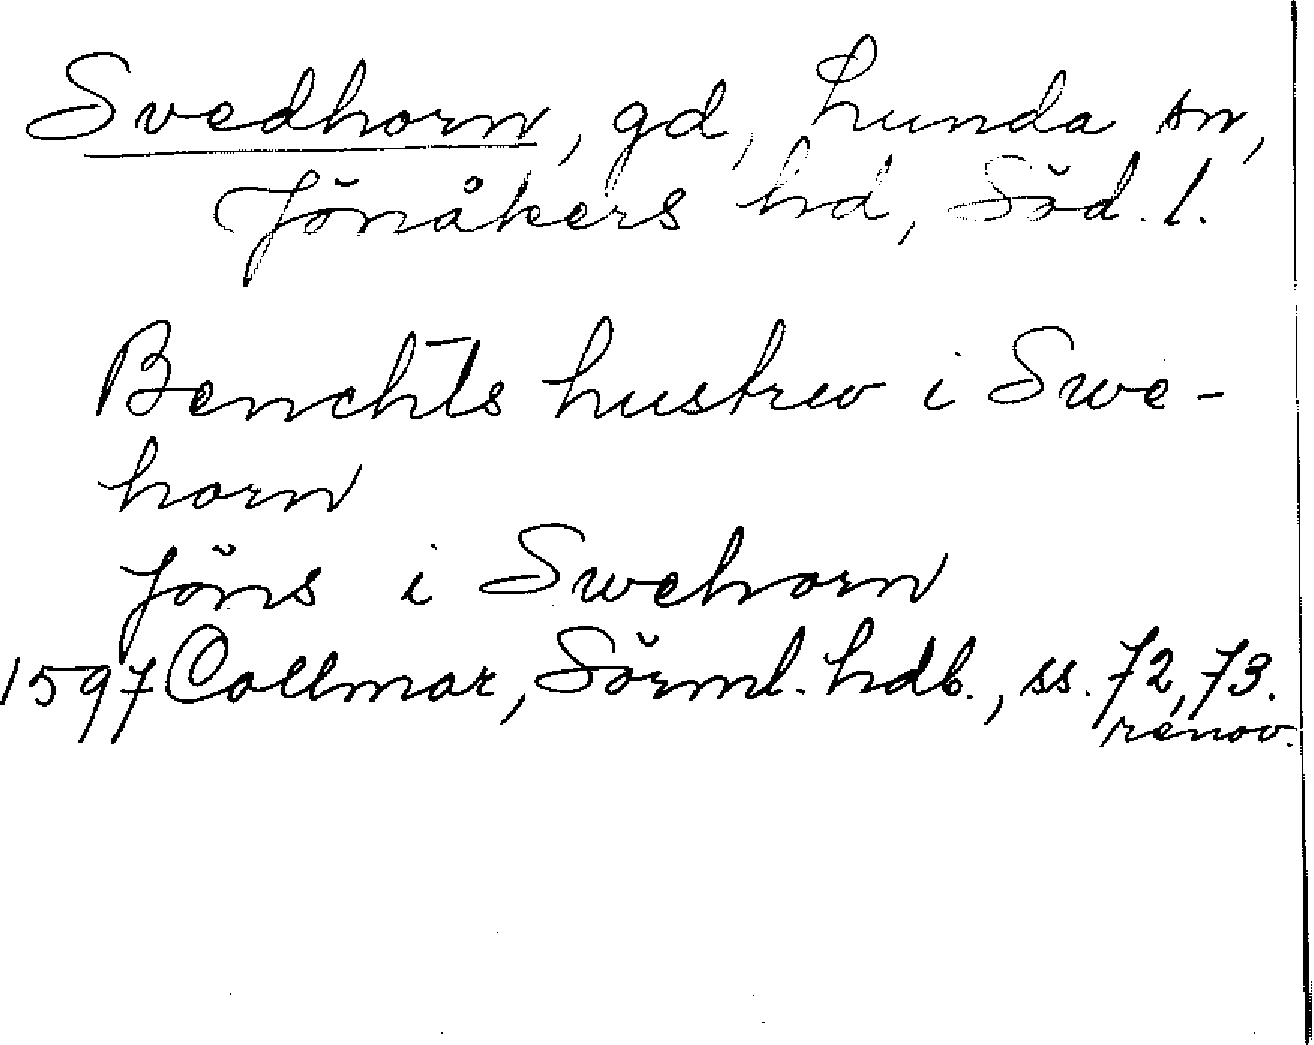 Svedhorn, gd, Lunda sn,
Jönåkers hd, Söd. l.
Benchts hustrw i Swe-
horn
Jöns i Swehorn
1597 Collmar, Sörml. hdb., ss. 72, 73.
renov.